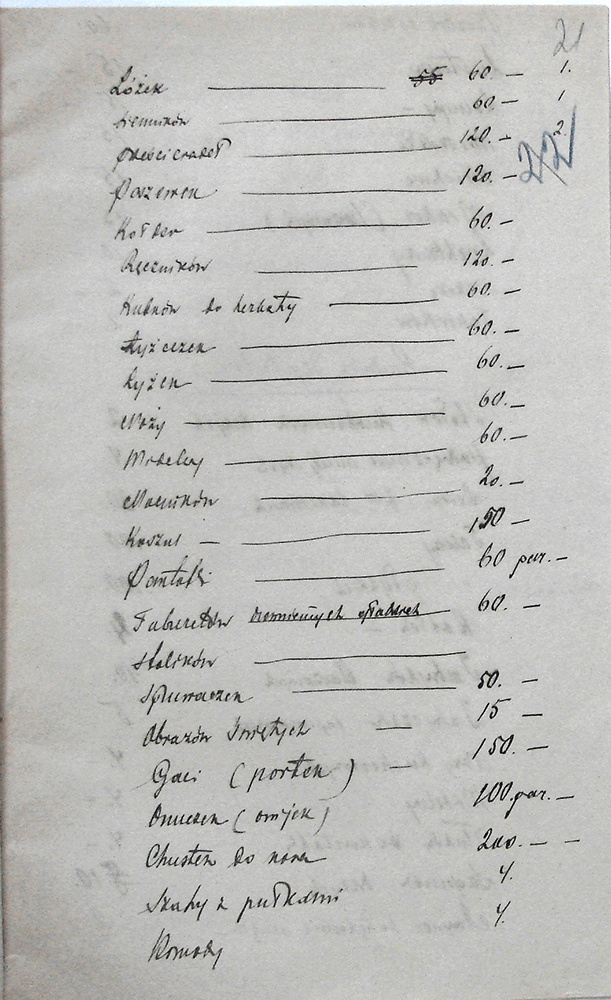 21
Łóżek — 55 60.— 1.
Sienników — 60.— 1
prześcieradeł — 120.— 2.
22
Poszewek — 120.—
Kołder — 60.—
Ręczników — 120.—
Kubków do herbaty — 60.—
Łyżeczek — 60.—
Łyżek — 60.—
Noży — 60.—
Widelcy — 60.—
20.—
Koszul — 150—
Pantofli — 60 par.—
Taburetów — 60.—
Stolików —
Spluwaczek — 50.—
Obrazów Świętych — 15—
Gaci (portek) — 150.—
Onuczek (owijek) 100 par.—
Chustek do nosa 200.— —
Szafy z pułkami 4.
Komody 4.